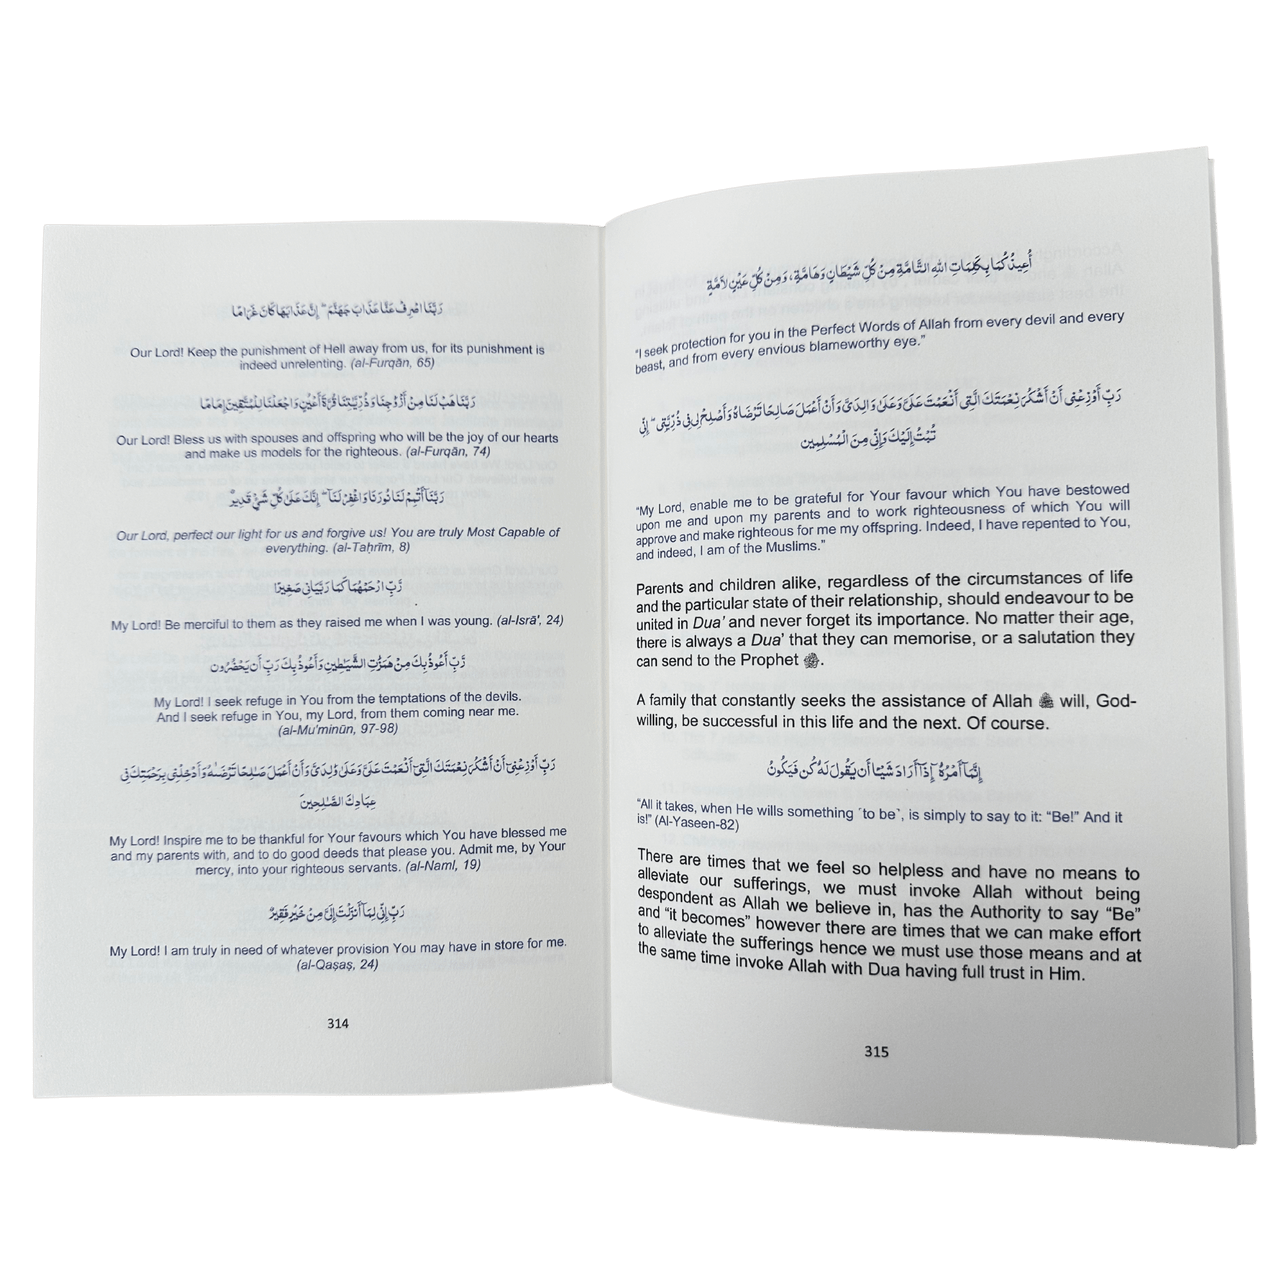 رَبَّنَا اصْرِفْ عَنَّا عَذَابَ جَهَنَّمَ ۖ إِنَّ عَذَابَهَا كَانَ غَرَامًا
Our Lord! Keep the punishment of Hell away from us, for its punishment is
indeed unrelenting. (al-Furqān, 65)
رَبَّنَا هَبْ لَنَا مِنْ أَزْوَٰجِنَا وَذُرِّيَّـٰتِنَا قُرَّةَ أَعْيُنٍ وَاجْعَلْنَا لِلْمُتَّقِينَ إِمَامًا
Our Lord! Bless us with spouses and offspring who will be the joy of our hearts
and make us models for the righteous. (al-Furqān, 74)
رَبَّنَآ أَتْمِمْ لَنَا نُورَنَا وَاغْفِرْ لَنَآ ۖ إِنَّكَ عَلَىٰ كُلِّ شَىْءٍ قَدِيرٌ
Our Lord, perfect our light for us and forgive us! You are truly Most Capable of
everything. (al-Taḥrīm, 8)
رَّبِّ ارْحَمْهُمَا كَمَا رَبَّيَانِى صَغِيرًا
My Lord! Be merciful to them as they raised me when I was young. (al-Isrā', 24)
رَّبِّ أَعُوذُ بِكَ مِنْ هَمَزَٰتِ الشَّيَـٰطِينِ وَأَعُوذُ بِكَ رَبِّ أَن يَحْضُرُونِ
My Lord! I seek refuge in You from the temptations of the devils.
And I seek refuge in You, my Lord, from them coming near me.
(al-Mu'minūn, 97-98)
رَبِّ أَوْزِعْنِىٓ أَنْ أَشْكُرَ نِعْمَتَكَ الَّتِىٓ أَنْعَمْتَ عَلَىَّ وَعَلَىٰ وَٰلِدَىَّ وَأَنْ أَعْمَلَ صَـٰلِحًا تَرْضَىٰهُ وَأَدْخِلْنِى بِرَحْمَتِكَ فِى
عِبَادِكَ الصَّـٰلِحِينَ
My Lord! Inspire me to be thankful for Your favours which You have blessed me
and my parents with, and to do good deeds that please you. Admit me, by Your
mercy, into your righteous servants. (al-Naml, 19)
رَبِّ إِنِّى لِمَآ أَنزَلْتَ إِلَىَّ مِنْ خَيْرٍ فَقِيرٌ
My Lord! I am truly in need of whatever provision You may have in store for me.
(al-Qaṣaṣ, 24)
314
أُعِيذُكُمَا بِكَلِمَاتِ اللهِ التَّامَّةِ مِنْ كُلِّ شَيْطَانٍ وَهَامَّةٍ، وَمِنْ كُلِّ عَيْنٍ لاَمَّةٍ
“I seek protection for you in the Perfect Words of Allah from every devil and every
beast, and from every envious blameworthy eye.”
رَبِّ أَوْزِعْنِي أَنْ أَشْكُرَ نِعْمَتَكَ الَّتِي أَنْعَمْتَ عَلَيَّ وَعَلَىٰ وَالِدَيَّ وَأَنْ أَعْمَلَ صَالِحًا تَرْضَاهُ وَأَصْلِحْ لِي فِي ذُرِّيَّتِي ۖ إِنِّي
تُبْتُ إِلَيْكَ وَإِنِّي مِنَ الْمُسْلِمِينَ
“My Lord, enable me to be grateful for Your favour which You have bestowed
upon me and upon my parents and to work righteousness of which You will
approve and make righteous for me my offspring. Indeed, I have repented to You,
and indeed, I am of the Muslims.”
Parents and children alike, regardless of the circumstances of life
and the particular state of their relationship, should endeavour to be
united in Dua’ and never forget its importance. No matter their age,
there is always a Dua’ that they can memorise, or a salutation they
can send to the Prophet ﷺ.
A family that constantly seeks the assistance of Allah ﷻ will, God-
willing, be successful in this life and the next. Of course.
إِنَّمَآ أَمْرُهُۥٓ إِذَآ أَرَادَ شَيْـًٔا أَن يَقُولَ لَهُۥ كُن فَيَكُونُ
“All it takes, when He wills something ˹to be˺, is simply to say to it: “Be!” And it
is!” (Al-Yaseen-82)
There are times that we feel so helpless and have no means to
alleviate our sufferings, we must invoke Allah without being
despondent as Allah we believe in, has the Authority to say “Be”
and “it becomes” however there are times that we can make effort
to alleviate the sufferings hence we must use those means and at
the same time invoke Allah with Dua having full trust in Him.
315